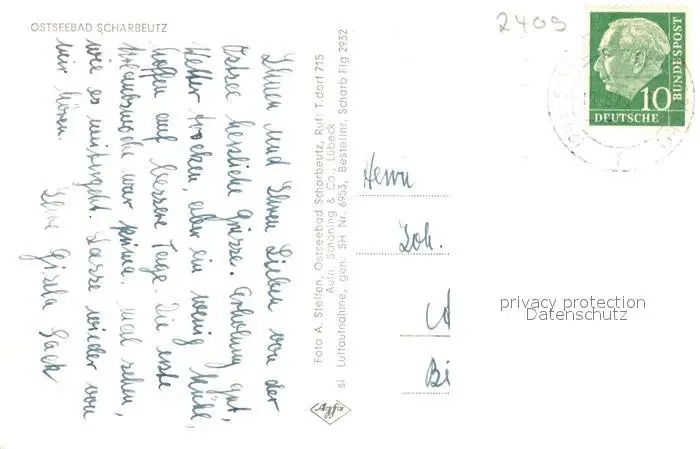 OSTSEEBAD SCHARBEUTZ
Ihnen und Ihren Lieben von der
Ostsee herzliche Grüsse. Erholung gut,
Wetter trocken, aber ein wenig kühl,
hoffen auf bessere Tage. Die erste
Urlaubswoche war prima. Mal sehen,
wie es weitergeht. Lasse wieder von
mir hören.
Ihre Gisela Sack
Foto A. Steffen, Ostseebad Scharbeutz, Ruf: T.dorf 715
Aufn. Schöning & Co., Lübeck
si Luftaufnahme, gen. SH Nr. 6953, Bestellnr. Scharb Flg 2932
Agfa
2409
DEUTSCHE
BUNDESPOST
10
Herrn
Joh.
A
Bi
privacy protection
Datenschutz